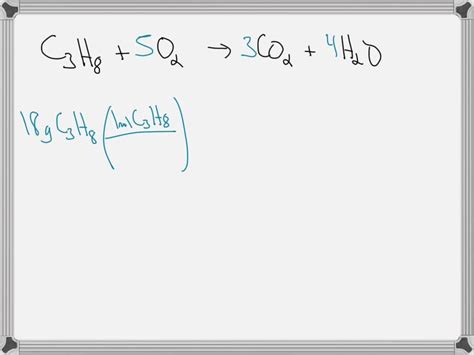 C₃H₈ + 5O₂ → 3CO₂ + 4H₂O
18g C₃H₈ (1ml C₃H₈/